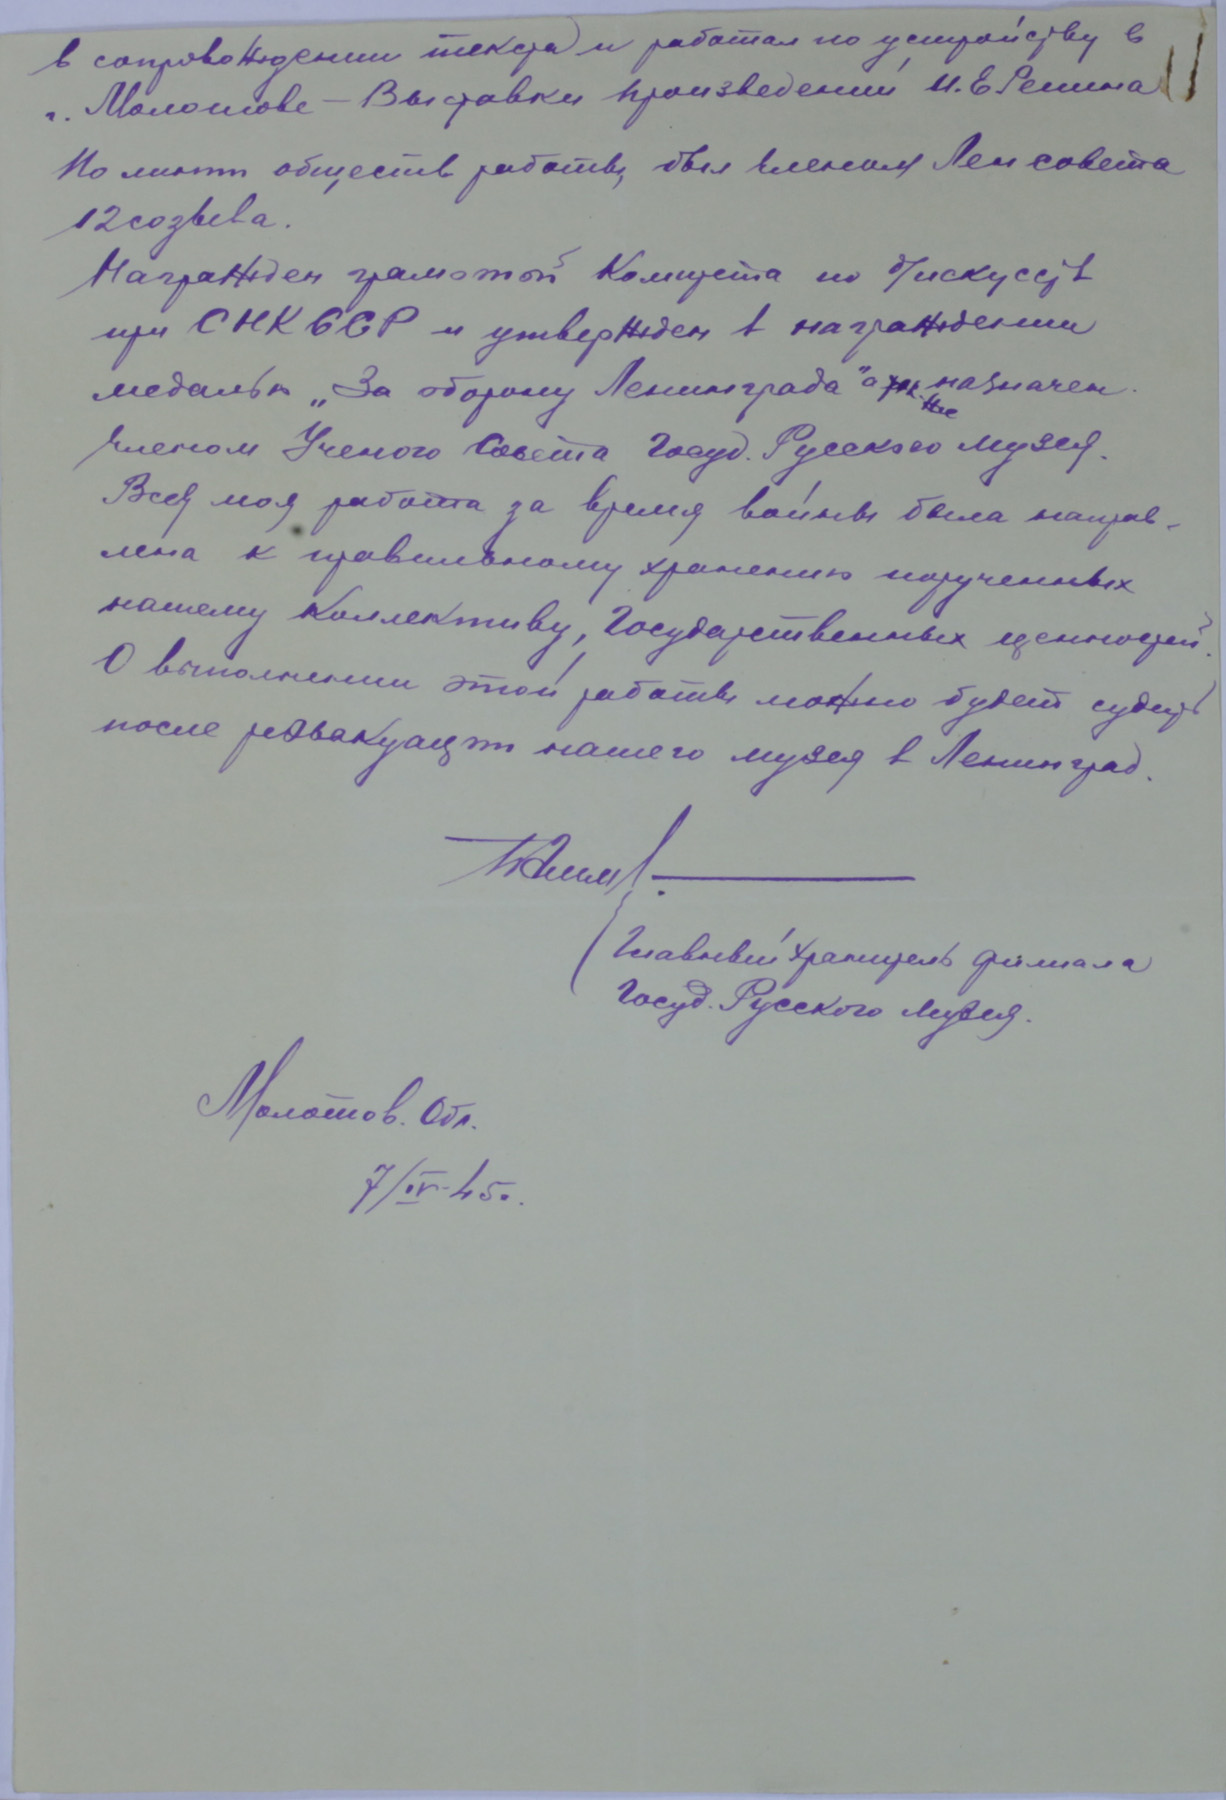 в сопровождении текста) и работал по устройству в
г. Молотове – Выставки произведений И.Е Репина
По линии обществ работы, был членом Ленсовета
12 созыва.
Награжден грамотой Комитета по д/искусств
при СНК ССР и утвержден в награждении
медалью „За оборону Ленинграда" а также назначен
членом Ученого Совета Госуд. Русского музея.
Вся моя работа за время войны была направ-
лена к правильному хранению порученных
нашему коллективу, Государственных ценностей.
О выполнении этой работы можно будет судить
после реэвакуации нашего музея в Ленинград.
Главный хранитель филиала
Госуд. Русского Музея.
Молотов. Обл.
7/IV-45г.